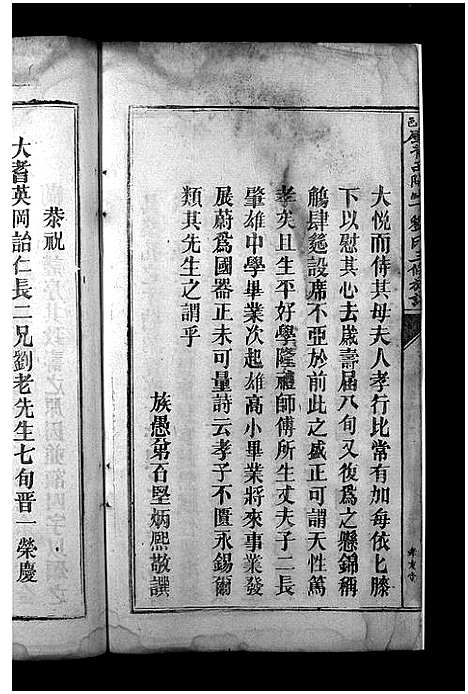 大悅而侍其母夫人孝行比常有加每依匕膝
下以慰其心去歲壽屆八旬又復爲之懸錦稱
觴肆筵設席不亞於前此之盛正可謂天性篤
孝矣且生平好學隆禮師傅所生丈夫子二長
肇雄中學畢業次起雄高小畢業將來事業發
展蔚爲國器正未可量詩云孝子不匱永錫爾
類其先生之謂乎
族愚弟石堅炳熙敬譔
恭祝
大耆英岡詒仁長二兄劉老先生七旬晋一榮慶